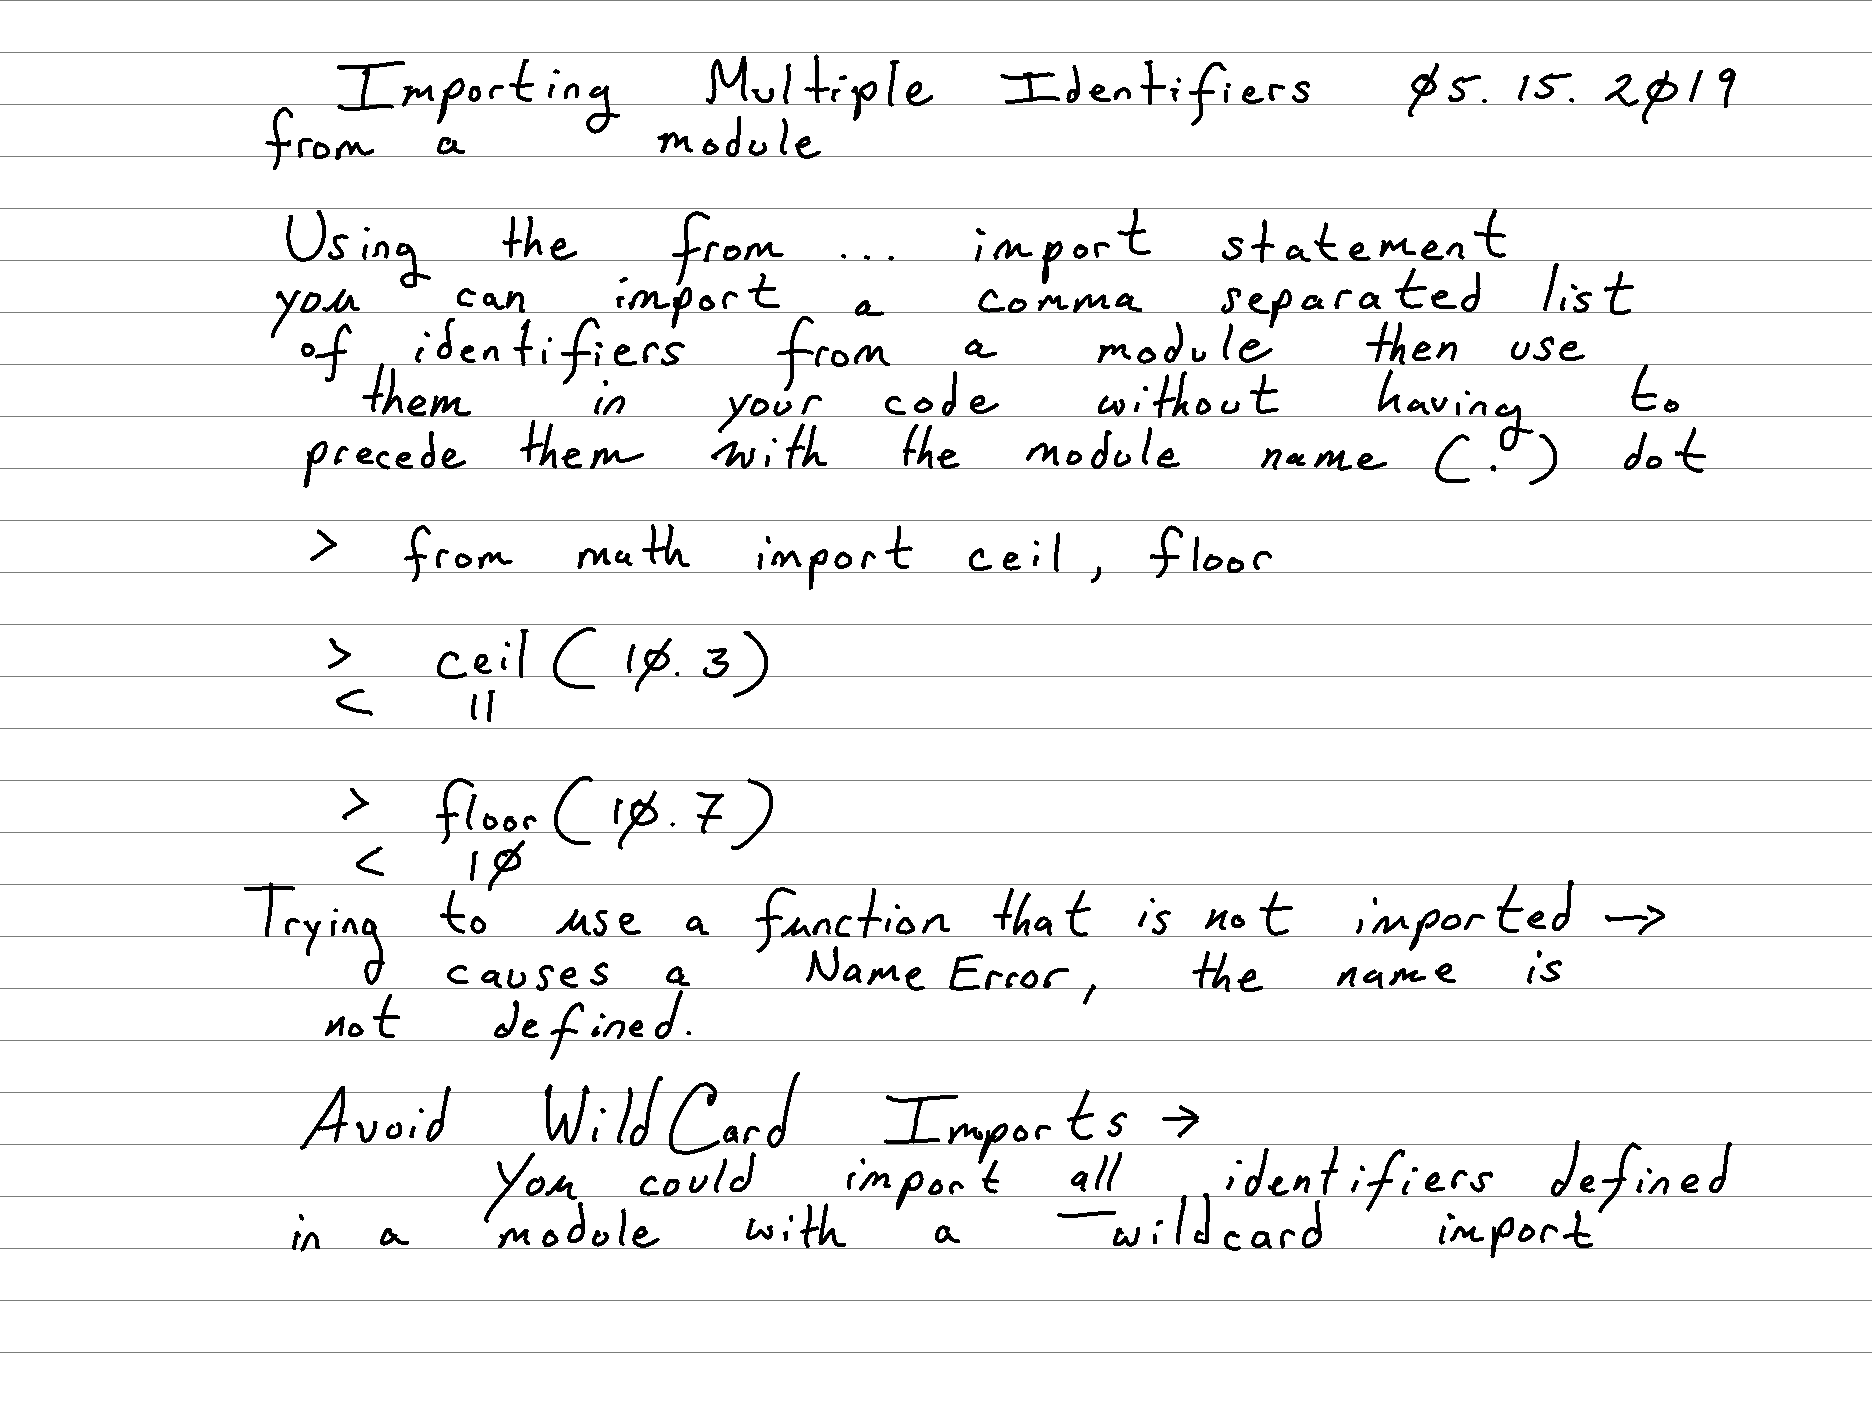 Importing Multiple Identifiers 05.15.2019
from a module
Using the from ... import statement
you can import a comma separated list
of identifiers from a module then use
them in your code without having to
precede them with the module name (.) dot
> from math import ceil, floor
> ceil(10.3)
< 11
> floor(10.7)
< 10
Trying to use a function that is not imported →
causes a Name Error, the name is
not defined.
Avoid WildCard Imports →
You could import all identifiers defined
in a module with a wildcard import